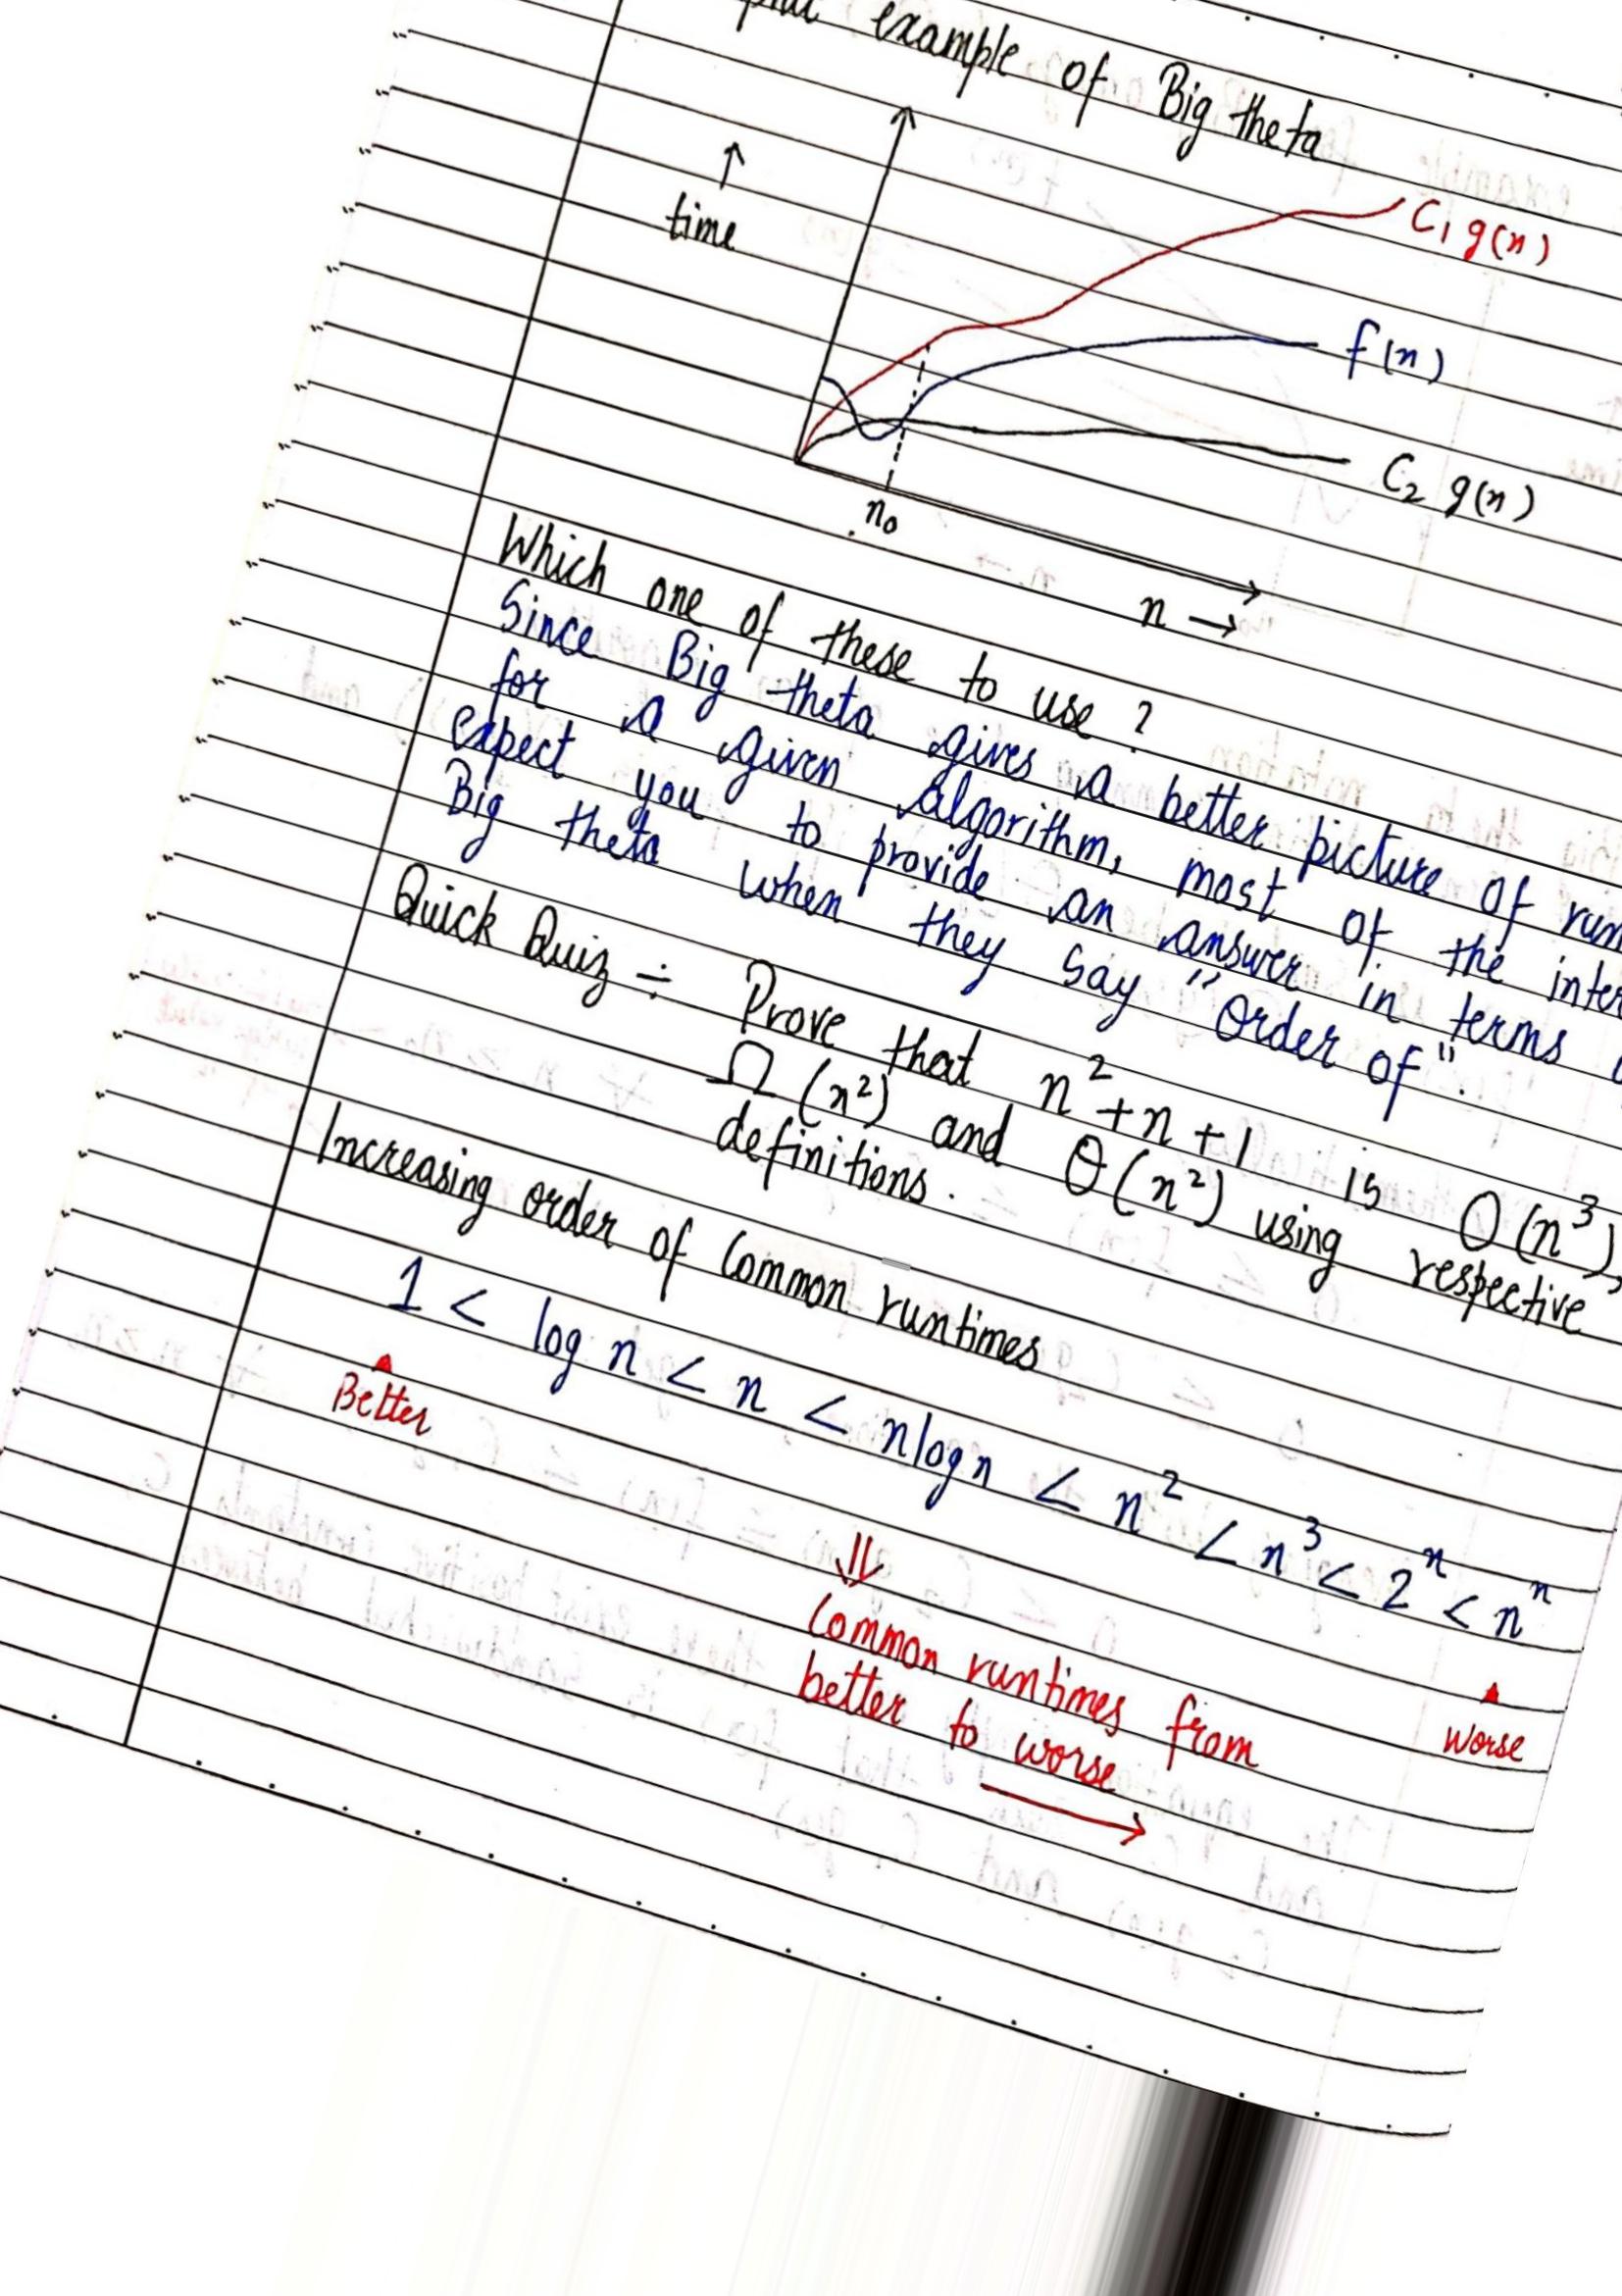 example of Big theta
↑
time
C₁ g(n)
f(n)
C₂ g(n)
n₀
n →
Which one of these to use ?
Since Big theta gives a better picture of run
for a given algorithm, most of the inter
expect you to provide an answer in terms
Big theta when they say "Order of".
Quick Quiz ÷ Prove that n² + n + 1 is O(n³),
Ω (n²) and Θ(n²) using respective
definitions.
Increasing order of Common runtimes
1 < log n < n < nlogn < n² < n³ < 2ⁿ < nⁿ
Better
Worse
⇓
Common runtimes from
better to worse
→